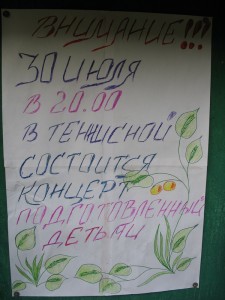 ВНИМАНИЕ!!!
30 ИЮЛЯ
В 20.00
В ТЕННИСНОЙ
СОСТОИТСЯ
КОНЦЕРТ
ПОДГОТОВЛЕННЫЙ
ДЕТЬМИ